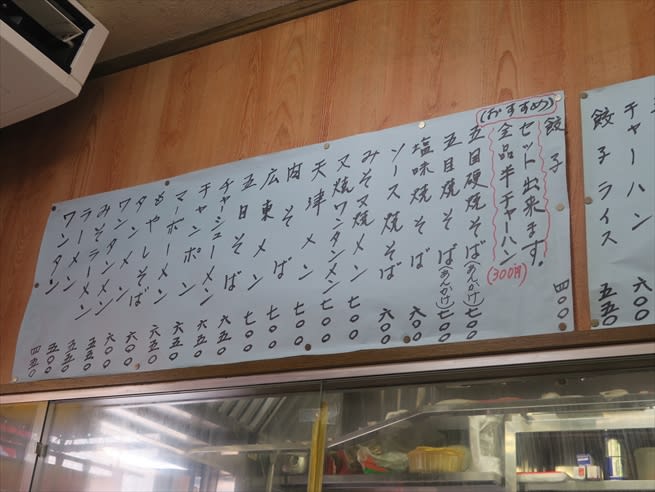 チャーハン 六〇〇
餃子ライス 五五〇
餃子 四〇〇
(おすすめ)
セット出来ます。
全品半チャーハン(300円)
五目硬焼そば(あんかけ)七〇〇
五目焼そば(あんかけ)七〇〇
塩味焼そば 六〇〇
ソース焼そば 六〇〇
みそ叉焼メン 七〇〇
叉焼ワンタンメン 七〇〇
天津メン 七〇〇
肉そば 七〇〇
広東メン 七〇〇
五目そば 七〇〇
チャシューメン 六五〇
チャンポン 六五〇
マーボーメン 六五〇
もやしそば 六〇〇
タンメン 六〇〇
ワンタンメン 五五〇
みそラーメン 五五〇
ラーメン 五〇〇
ワンタン 四五〇